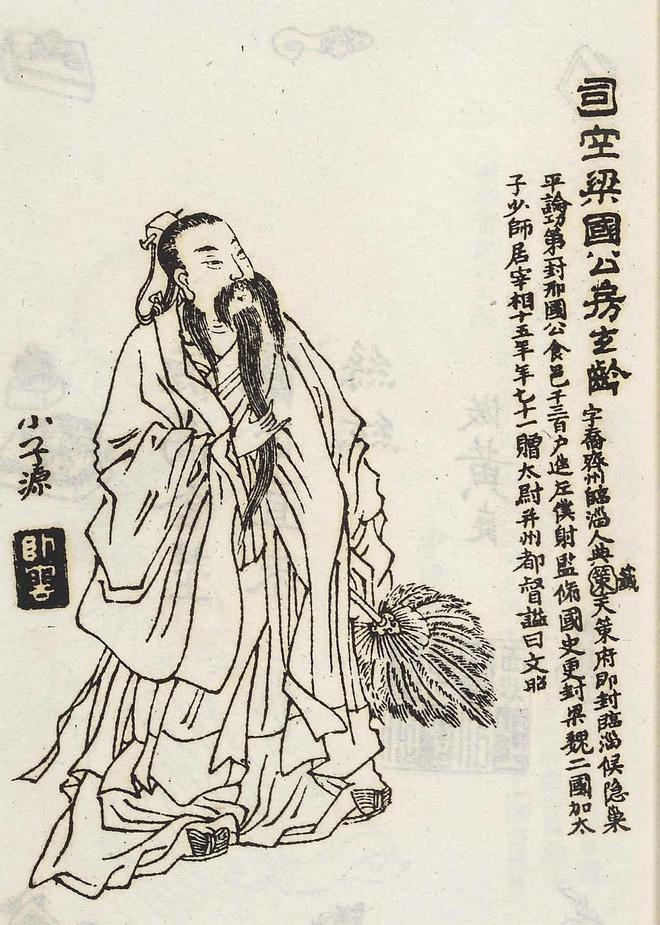 司空梁國公房玄齡
字喬齊州臨淄人典籖天策府即封臨淄侯隐巢
平論功第封邢國公食邑千三百户進左僕射監脩國史更封梁魏二國加太
子少師居宰相十五年年七十一贈太尉并州都督謚曰文昭
小子源